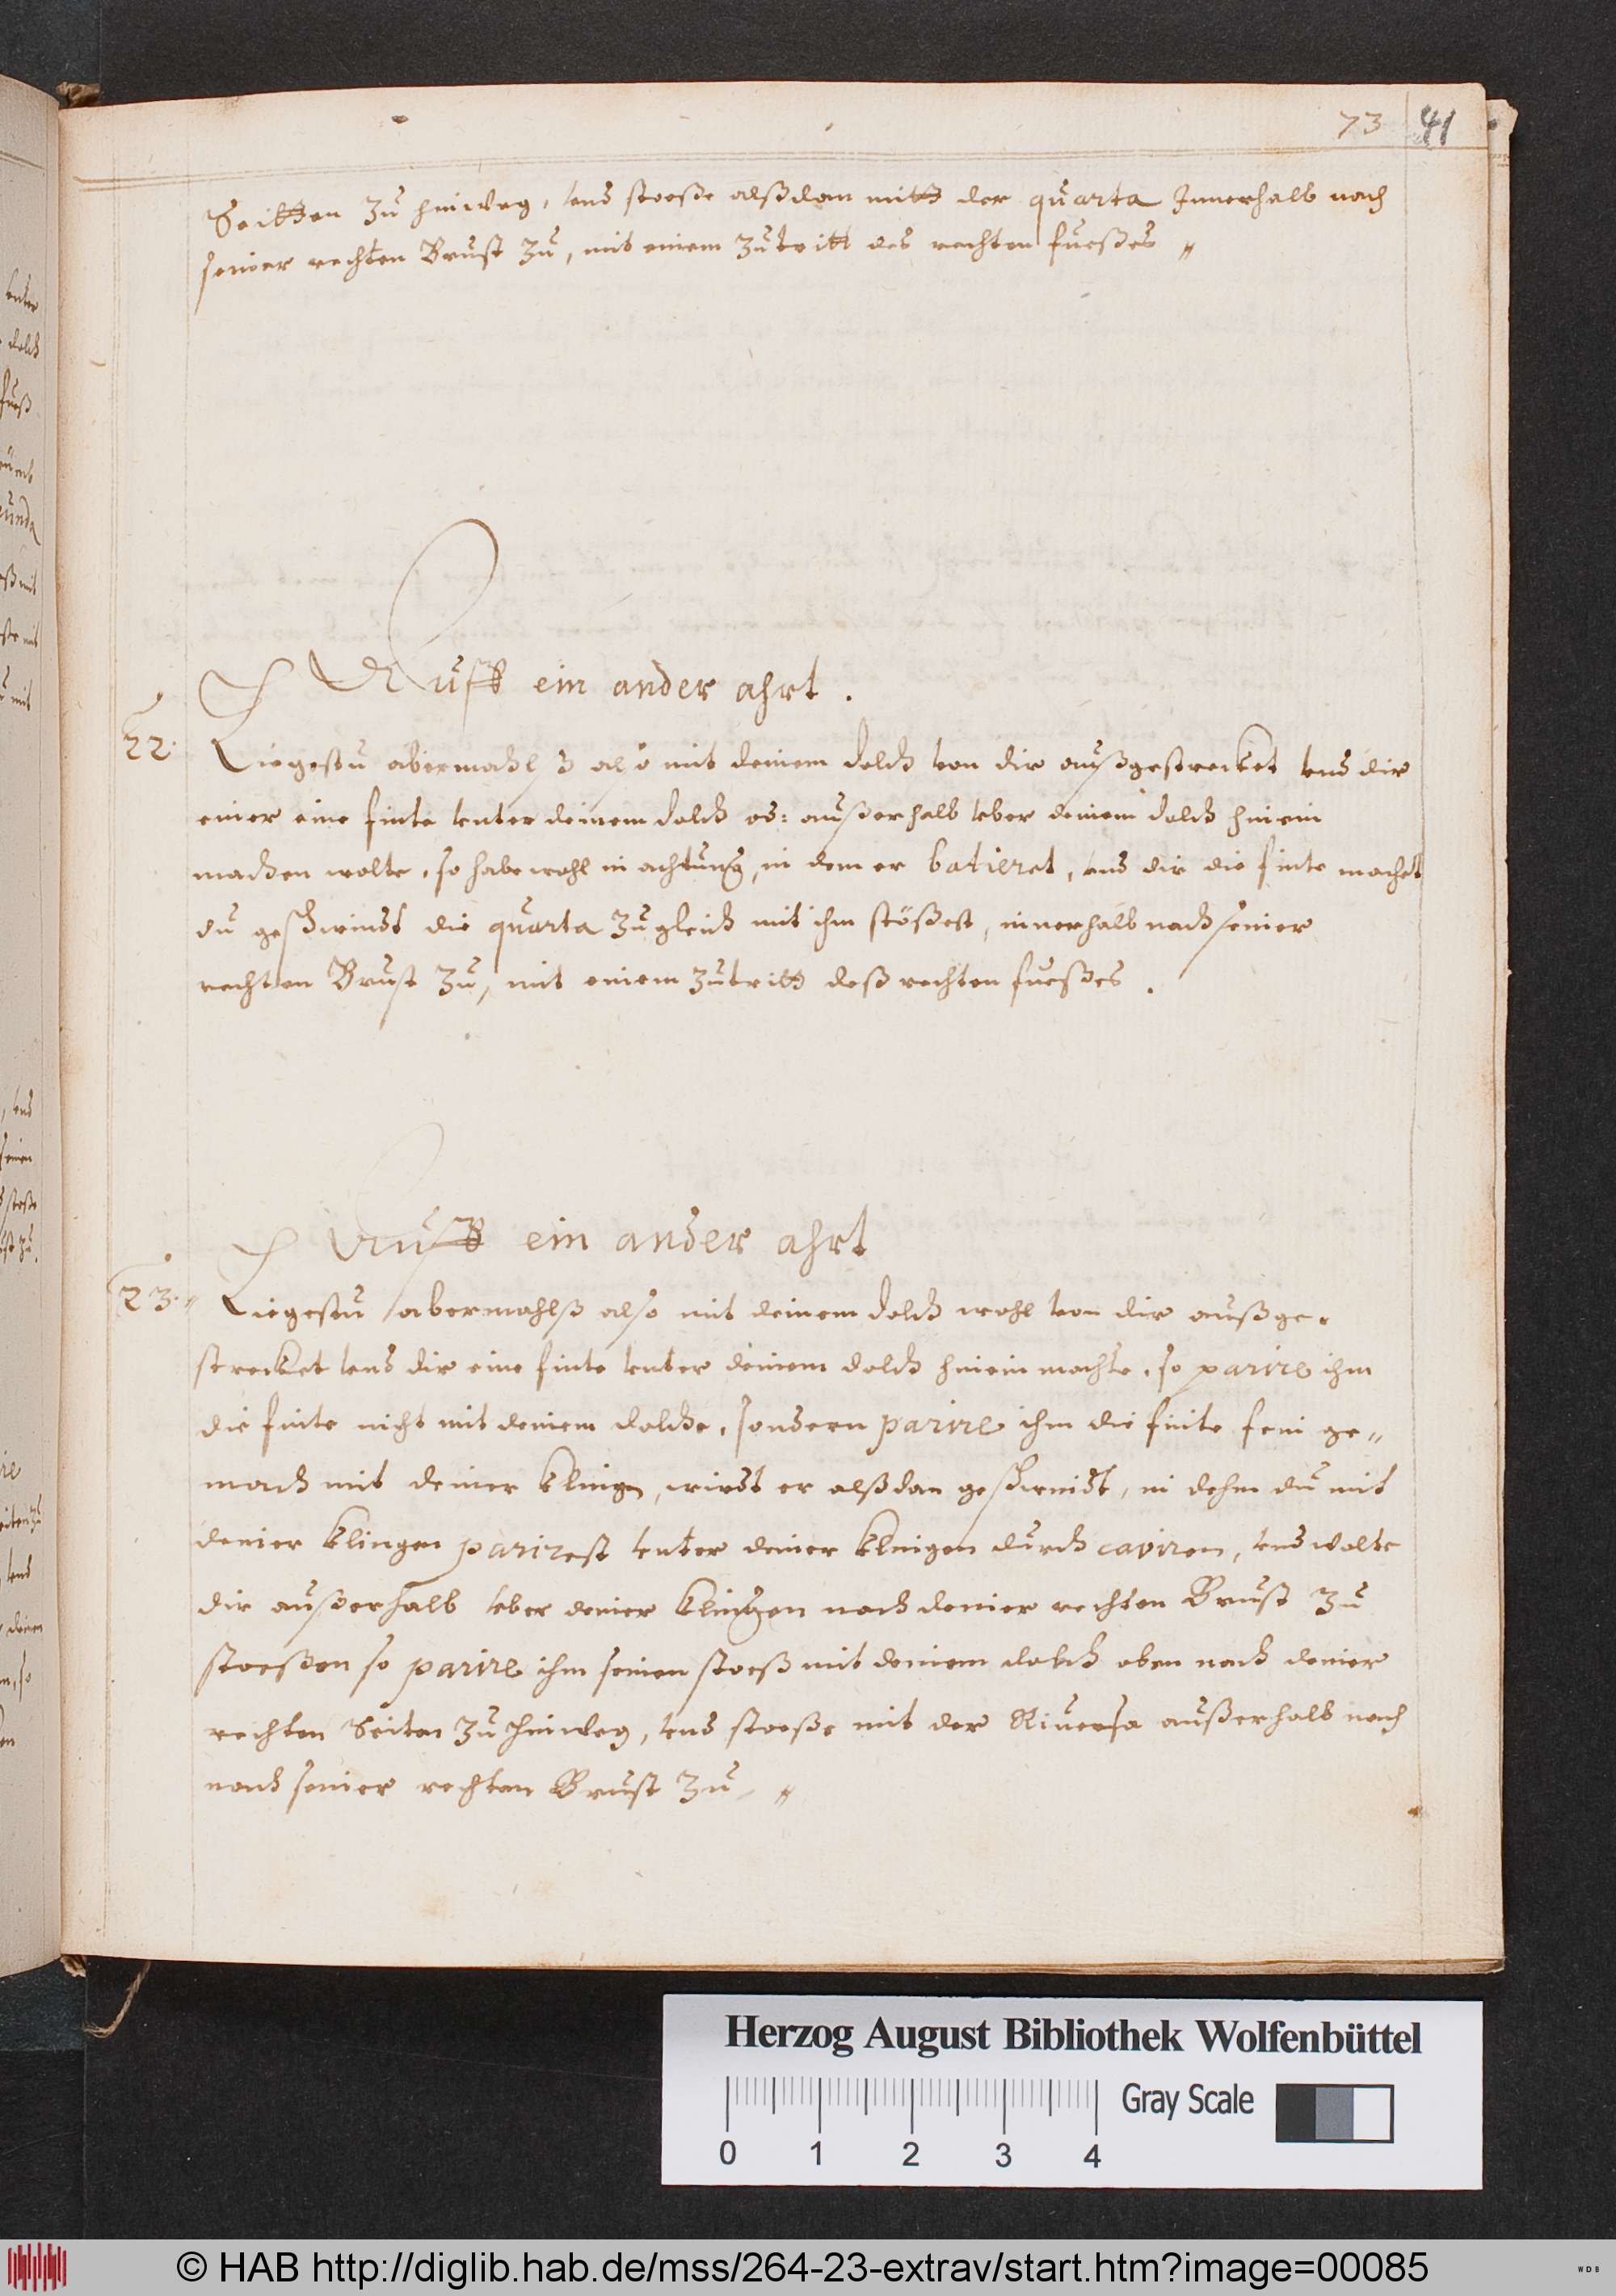 73 41
Seitten zu hinweg, vnd stoeße alßdan mitt der quarta Innerhalb nach
seiner rechten Brust zu, mit einem zutritt des rechten fueßes //
Auff ein ander ahrt.
22. Liegestu abermahls also mit deinem dolch von dir außgestrecket vnd dir
einer eine finte vnter deinem dolch od: außerhalb vber deinem dolch hinein
machen wolte, so habe wohl in achtung, in dem er batieret, vnd dir die finte machet
du geschwindt die quarta zugleich mit ihm stößest, innerhalb nach seiner
rechten Brust zu, mit einem zutritt deß rechten fueßes.
Auff ein ander ahrt
23. Liegestu abermahlß also mit deinem dolch wohl von dir außge-
strecket vnd dir eine finte vnter deinem dolch hinein machte, so parire ihm
die finte nicht mit deinem dolche, sondern parire ihm die finte fein ge-
mach mit deiner klingen, wirdt er alßdan geschwindt, in dehm du mit
deiner klingen parirest vnter deiner klingen durch caviren, vnd wolte
dir außerhalb vber deiner klingen nach deiner rechten Brust zu
stoeßen so parire ihm seinen stoeß mit deinem dolch oben nach deiner
rechten Seiten zu hinweg, vnd stoeße mit der Riuersa außerhalb nach
nach seiner rechten Brust zu //
Herzog August Bibliothek Wolfenbüttel
Gray Scale
0 1 2 3 4
© HAB http://diglib.hab.de/mss/264-23-extrav/start.htm?image=00085
WDB